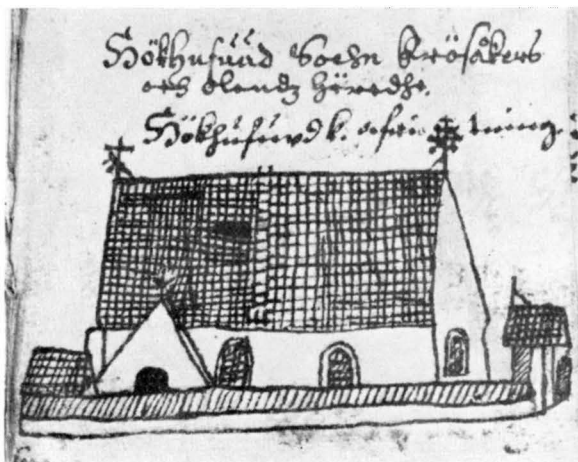 Hökhufuud Sochn Krösåkers
och olendz häredhe.
Hökhufuvd k. afritning.